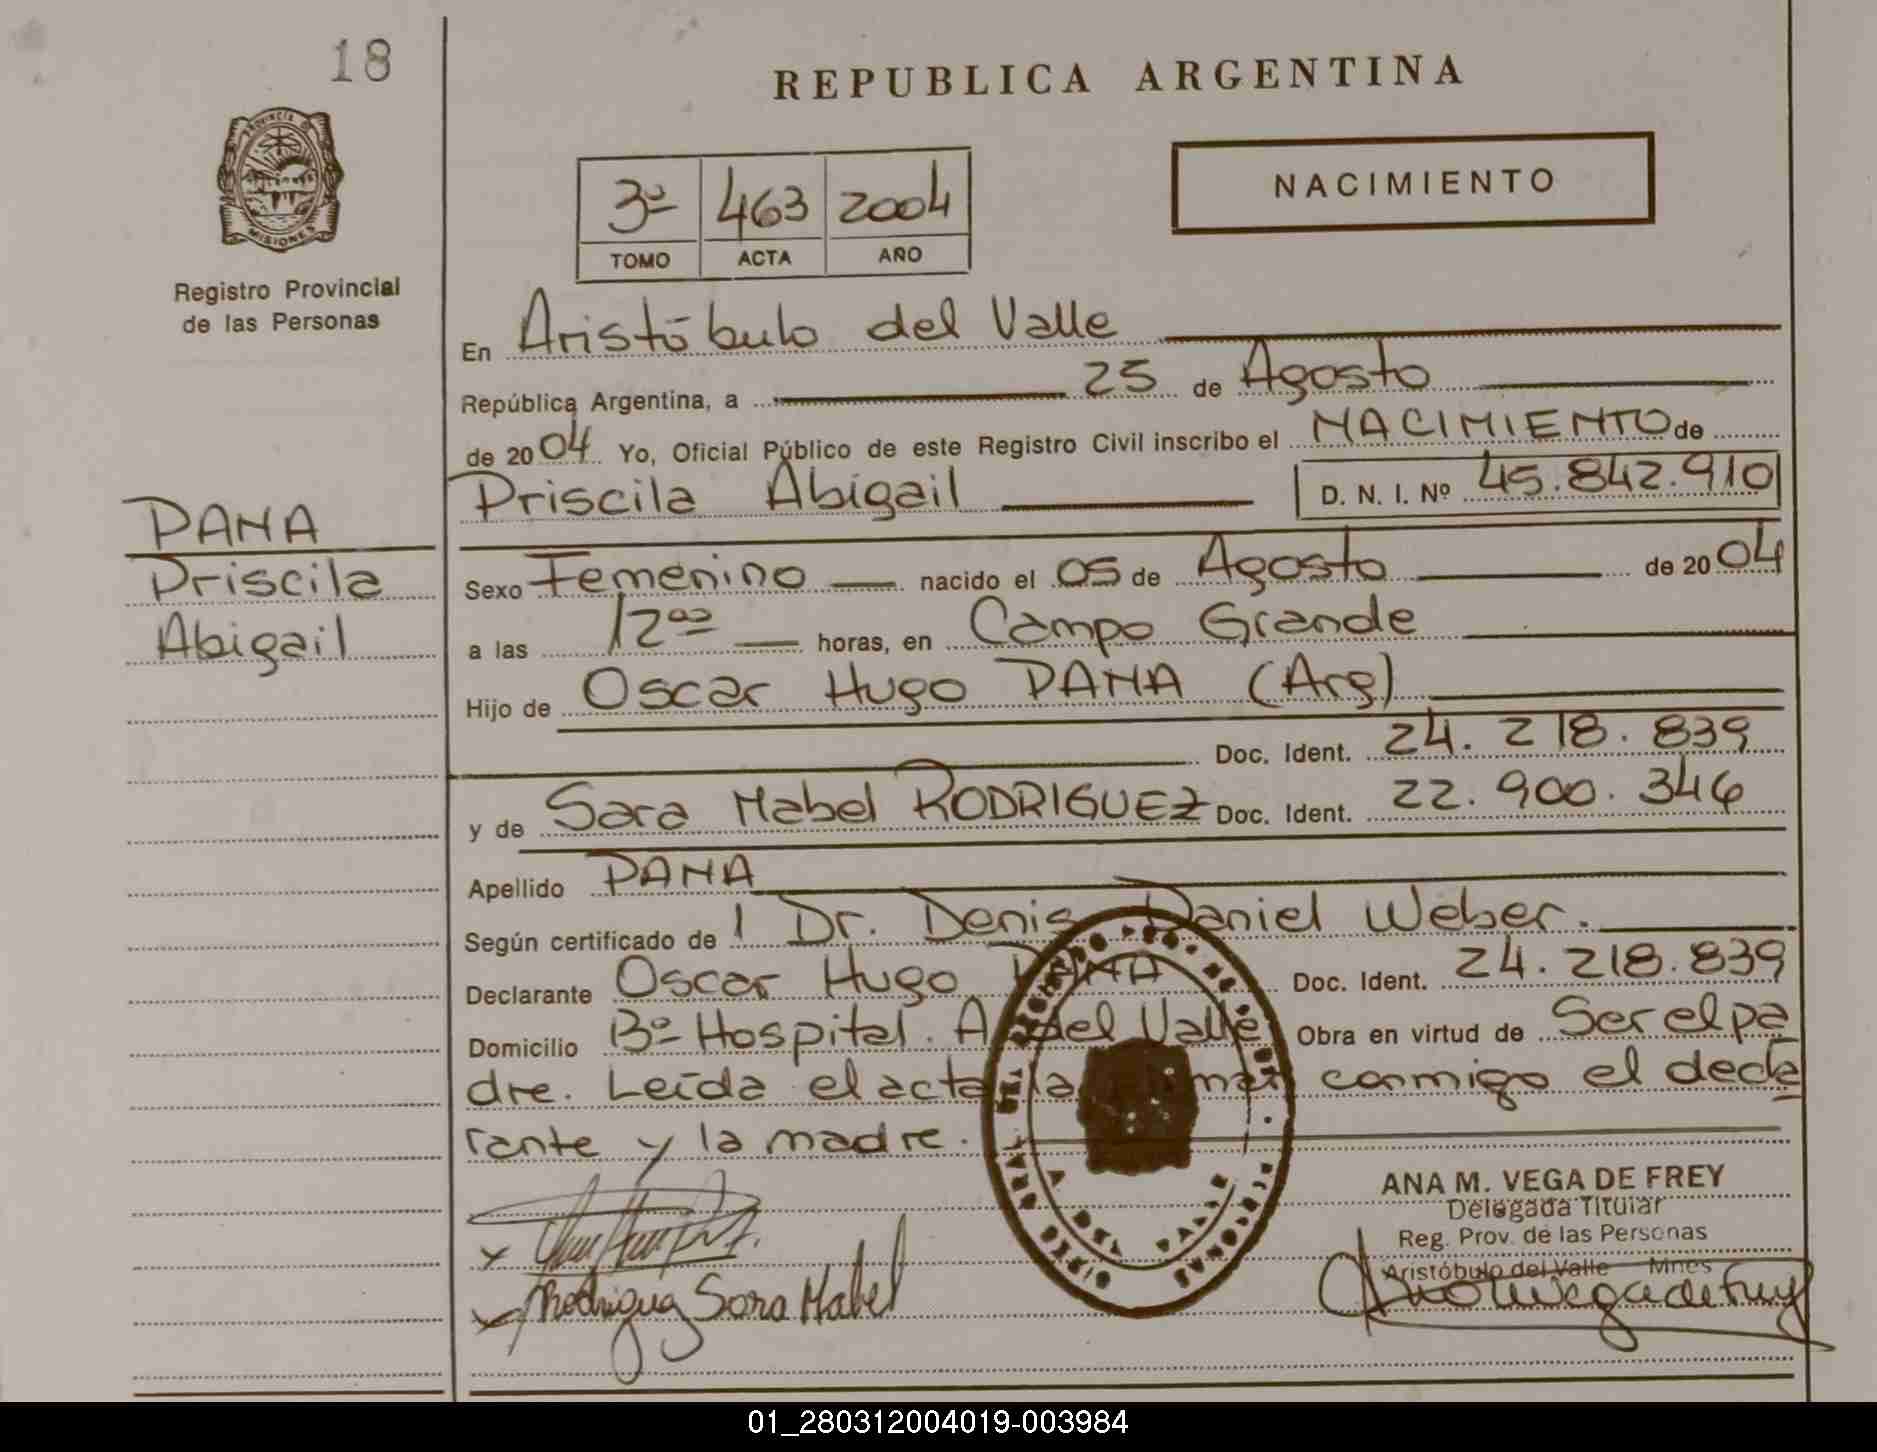 18
REPUBLICA ARGENTINA
NACIMIENTO
3ª 463 2004
TOMO ACTA AÑO
PROVINCIA DE
MISIONES
Registro Provincial
de las Personas
En Aristóbulo del Valle
República Argentina, a 25 de Agosto
de 2004 Yo, Oficial Público de este Registro Civil inscribo el NACIMIENTO de
Priscila Abigail D. N. I. Nº 45.842.910
PANA
Priscila
Abigail
Sexo Femenino nacido el 05 de Agosto de 2004
a las 12ºº horas, en Campo Grande
Hijo de Oscar Hugo PANA (Arg)
Doc. Ident. 24.218.839
y de Sara Mabel RODRIGUEZ Doc. Ident. 22.900.346
Apellido PANA
Según certificado de 1 Dr. Denis Daniel Weber.
Declarante Oscar Hugo PANA Doc. Ident. 24.218.839
Domicilio Bº Hospital. A. del Valle Obra en virtud de Ser el pa
dre. Leída el acta la firman conmigo el decla
rante y la madre.
ANA M. VEGA DE FREY
Delegada Titular
Reg. Prov. de las Personas
Aristóbulo del Valle Mnes
Rodriguez Sara Mabel
01_280312004019-003984